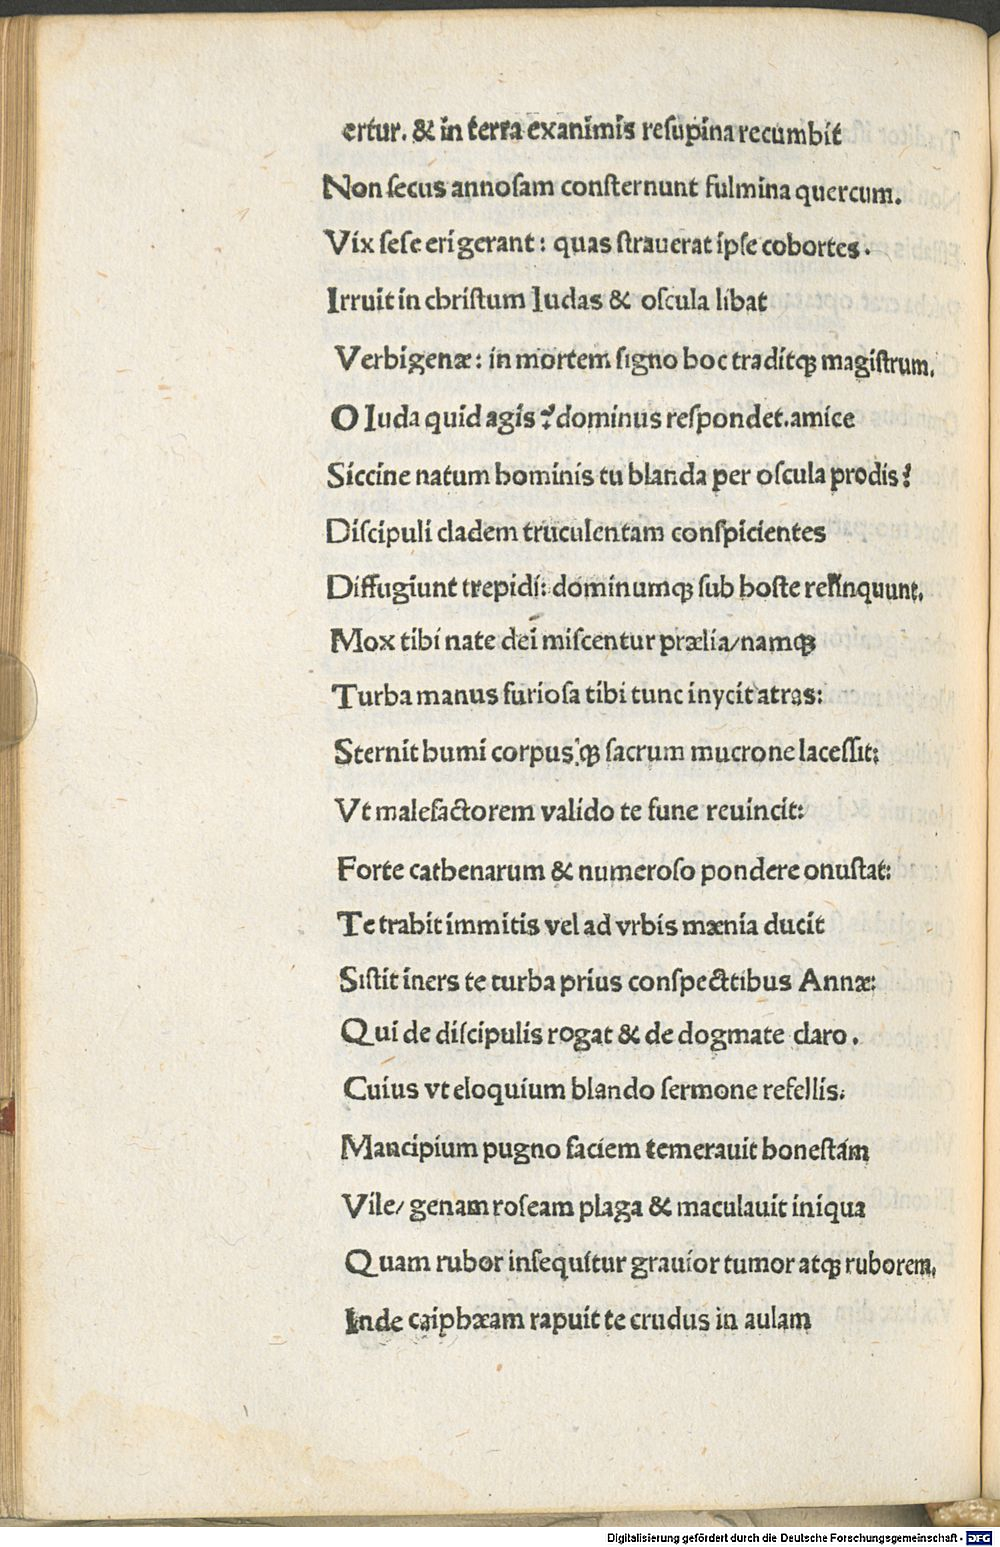 ertur. & in terra exanimis reſupina recumbit
Non ſecus annoſam conſternunt fulmina quercum.
Vix ſeſe erigerant: quas ſtrauerat ipſe cohortes.
Irruit in chriſtum Iudas & oſcula libat
Verbigenæ: in mortem ſigno hoc traditqȝ magiſtrum.
O Iuda quid agis? dominus reſpondet. amice
Siccine natum hominis tu blanda per oſcula prodis?
Diſcipuli cladem truculentam conſpicientes
Diffugiunt trepidi: dominumqȝ ſub hoſte relinquunt.
Mox tibi nate dei miſcentur prælia/namqȝ
Turba manus furioſa tibi tunc inycit atras:
Sternit humi corpus'qȝ ſacrum mucrone laceſſit:
Vt malefactorem valido te fune reuincit:
Forte cathenarum & numeroſo pondere onuſtat:
Te trahit immitis vel ad vrbis mænia ducit
Siſtit iners te turba prius conſpecttibus Annæ:
Qui de diſcipulis rogat & de dogmate claro.
Cuius vt eloquium blando ſermone refellis.
Mancipium pugno faciem temerauit honeſtam
Vile/ genam roſeam plaga & maculauit iniqua
Quam rubor inſequitur grauior tumor atqȝ ruborem.
Inde caiphæam rapuit te crudus in aulam
Digitalisierung gefördert durch die Deutsche Forschungsgemeinschaft - DFG